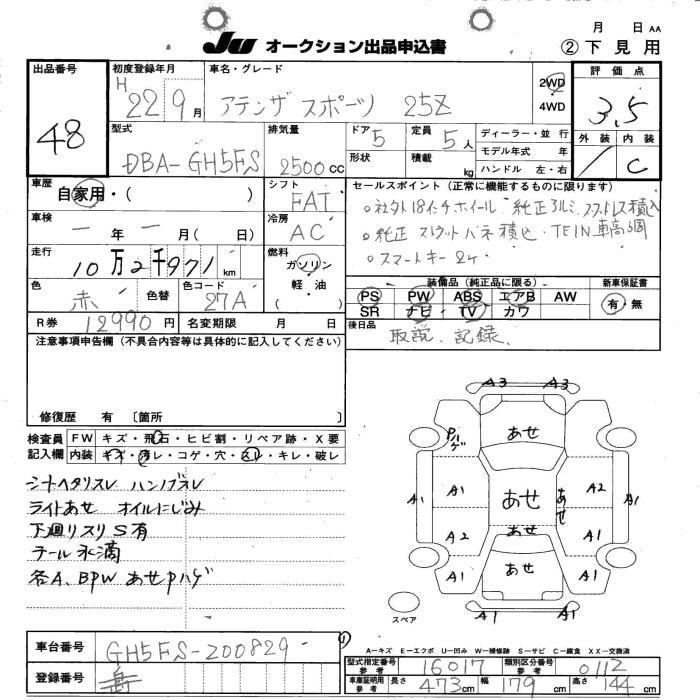 JU オークション出品申込書
月 日 AA
② 下見用
出品番号
48
初度登録年月
H 22 9月
車名・グレード
アテンザ スポーツ 25Z
2WD
4WD
評価点
3.5
外装 内装
C
型式
DBA-GH5FS
排気量
2500cc
ドア 5
形状
定員 5人
積載 kg
ディーラー・並行
モデル年式 年
ハンドル 左・右
車歴
自家用・( )
シフト
FAT
車検
一年一月(日)
冷房
AC
走行
10万2千971km
燃料
ガソリン
軽・油
( )
色
赤
色替
色コード
27A
R券 12990円
名変期限 月 日
セールスポイント(正常に機能するものに限ります)
○社外18インチホイール 純正アルミ
○純正 バネ積込 TEIN車高調
○スマートキー 2ヶ
装備品(純正品に限る)
PS PW ABS エアB AW
SR ナビ TV カワ
新車保証書
有・無
後日品
取説、記録、
注意事項申告欄(不具合内容等は具体的に記入してください)
修復歴 有 〔箇所 〕
検査員記入欄
FW キズ・飛石・ヒビ割・リペア跡・X要
内装 キズ・汚レ・コゲ・穴・スレ・キレ・破レ
シートヘタリスレ ハンドブスレ
ライトあせ オイルにじみ
下廻りスリ S有
テール水滴
各A、BPW あせPハゲ
A3 A3
Pハゲ
あせ
A1 A1 あせ あせ A2 A1
A2 あせ A1
A1 あせ A1
A1 A1
スペア
A-キズ E-エクボ U-凹み W-補修跡 S-サビ C-腐食 XX-交換済
車台番号
GH5FS-200829
登録番号
型式指定番号 参考
16017
類別区分番号 参考
0112
車庫証明用 参考
長さ 473cm
幅 179cm
高さ 144cm